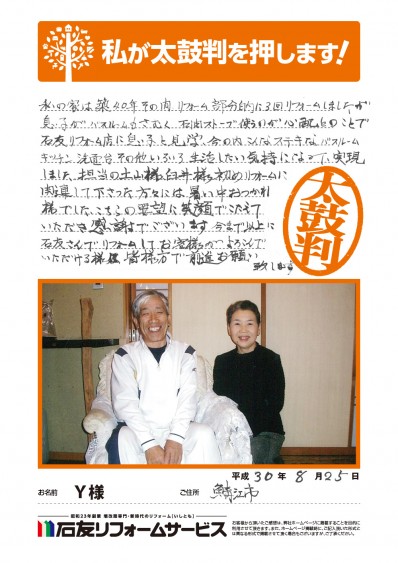 私が太鼓判を押します!
私の家は築40年その内リフォーム部分的に3回リフォームしましたが
息子がバスルームもさむく石油ストーブ使うのが心配とのことで
石友リフォーム店に息子と見学、今の内こんなステキなバスルーム
キッチン洗面台その他いろいろ生活したい気持になって、実現
しました担当の土山様臼井様初めリフォームに
関連して下さった方々には暑い中おつかれ
様でした、こちらの要望に笑顔でこたえて
いただき感謝でございます今まで以上に
石友さんでリフォームしてお客様がよろこんで
いただける様 皆様方で前進お願い
致します
太鼓判
平成30年8月25日
お名前 Y様 ご住所 鯖江市
昭和23年創業 増改築専門・新時代のリフォーム[いしとも]
石友リフォームサービス